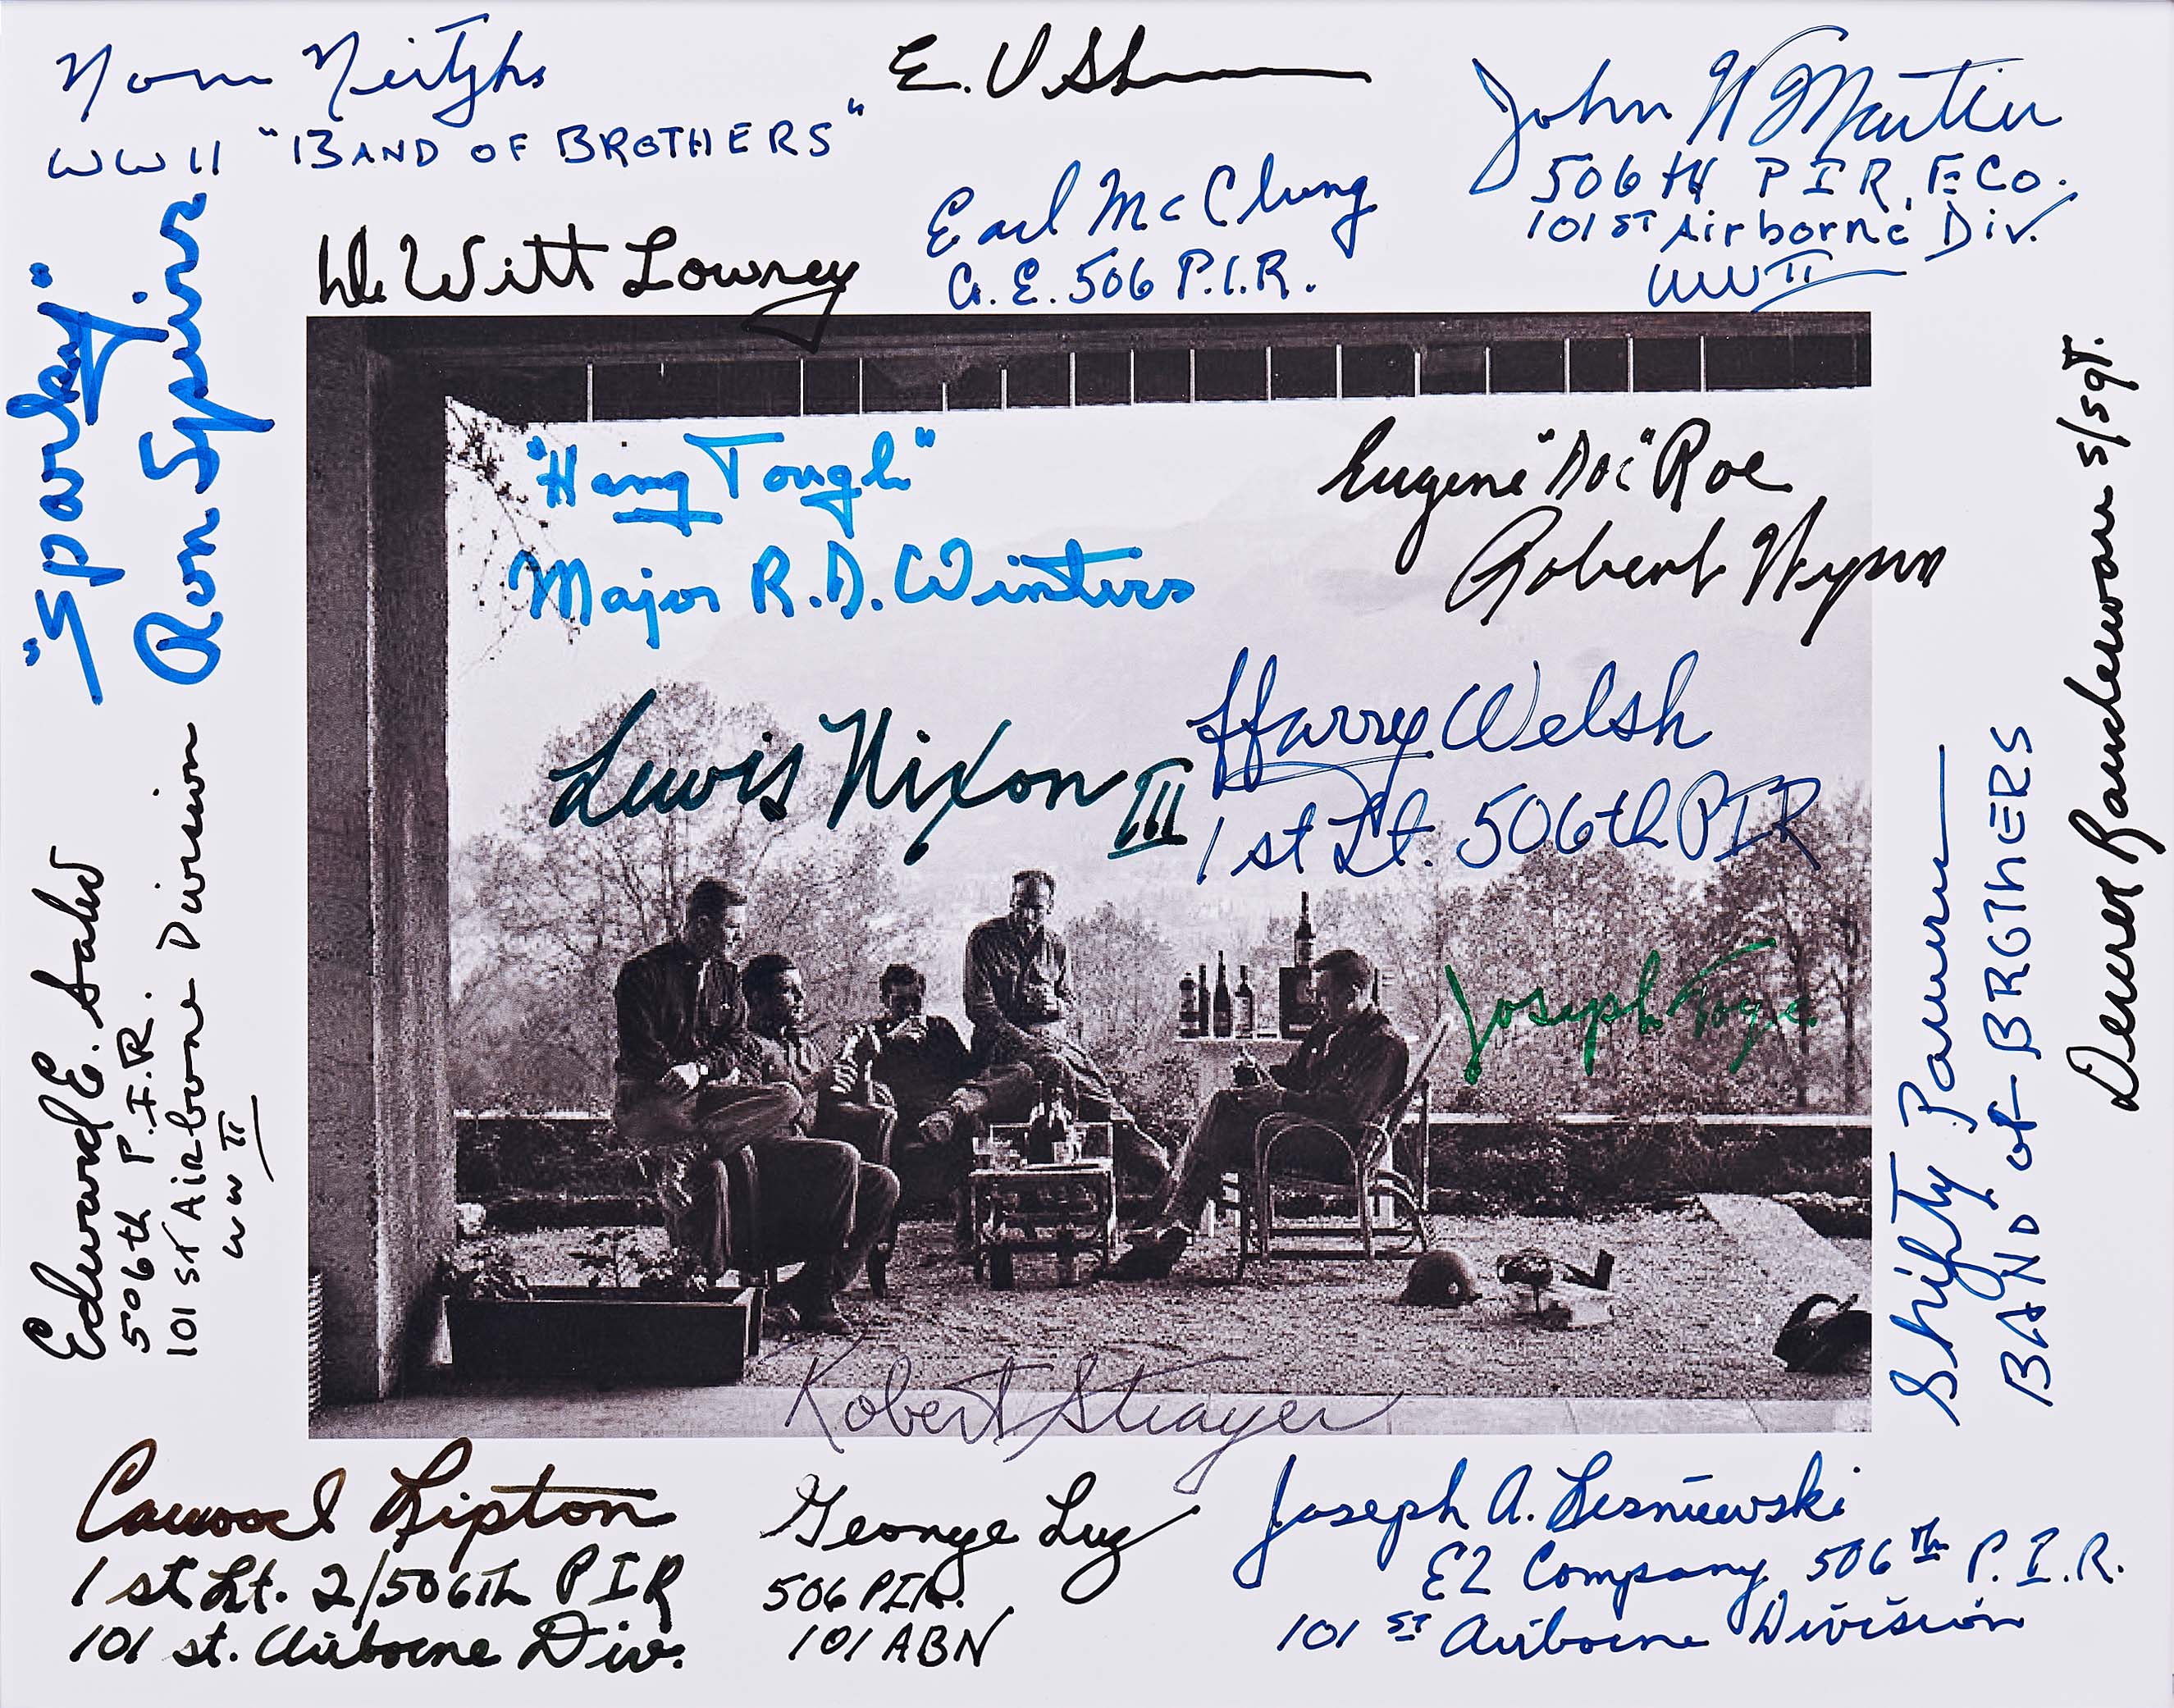 Nom Neitzke
WWII "BAND OF BROTHERS"
E. V. Sh
John W Martin
506TH P I R, E Co.
101ST Airborne Div.
WWII
DeWitt Lowrey
Earl McClung
Co. E. 506 P.I.R.
"Sparky"
Ron Speirs
"Hang Tough"
Major R.D. Winters
Eugene "Doc" Roe
Robert Wynn
Lewis Nixon III
Harry Welsh
1st Lt. 506th PIR
Joseph Toye
S/SgT.
Edward E. Sabo
506th P.I.R.
101 st Airborne Division
WW II
Shifty Powers
BAND of BROTHERS
Robert Strayer
Carwood Lipton
1st Lt. 2/506th PIR
101 st. Airborne Div.
George Luz
506 PIR.
101 ABN
Joseph A. Lesniewski
E2 Company 506th P.I.R.
101 ST Airborne Division